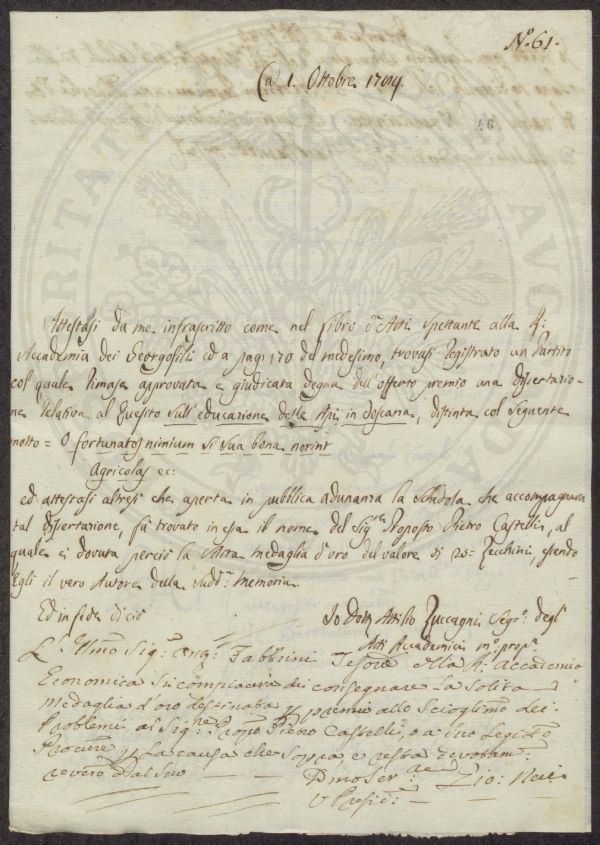 N.º 61.
(a 1. Ottobre 1794.
Attestasi da me infrascritto come nel Libro d'Atti spettante alla R:
Accademia dei Georgofili ed a pag: 170 del medesimo, trovasi registrato un Partito
col quale rimase approvata e giudicata degna dell'offerto premio una Dissertazio-
ne relativa al Quesito sull'educazione delle Api in Toscana, distinta col seguente
motto = O fortunatos nimium si sua bona norint
Agricolas ec:
ed attestasi altresì che aperta in pubblica adunanza la Schedola che accompagnava
tal Dissertazione, fù trovato in essa il nome del Sig.re Proposto Pietro Castelli, al
quale è dovuta perciò la solita medaglia d'oro del valore di 25= Zecchini, essendo
Egli il vero Autore della Sudd.a Memoria.
Ed in fede di ciò
Io Dott. Attilio Zuccagni Segr.o degl
Atti Accademici m.o prop.a
L'Illmo Sig.r Tabbrini Tesore della R. Accademia
Economica si compiacerà di consegnare la solita
Medaglia d'oro destinata p premio allo Scioglim.o dei
Problemi al Sig.re Prop.o Pietro Castelli, o a suo Legitt.o
Procure p la causa che sopra e resta devotam.e
Dmo Ser.
V Presid.